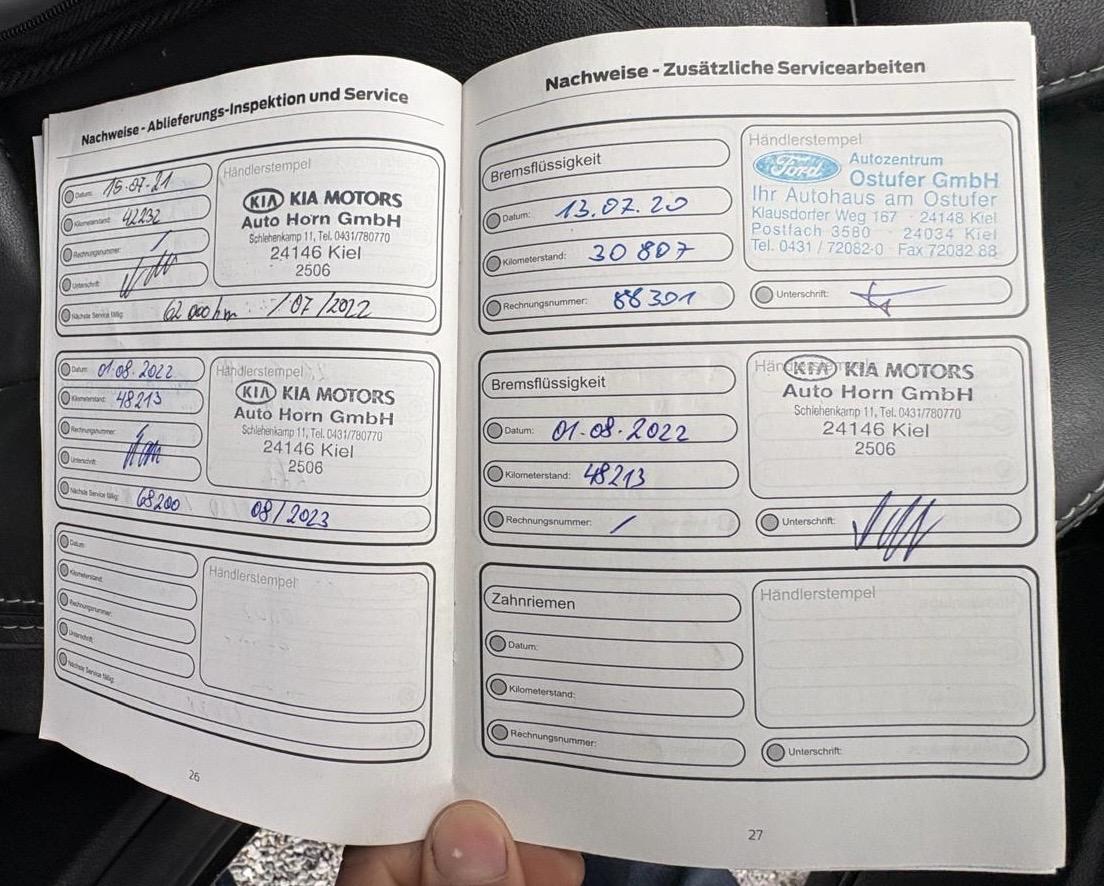 Nachweise - Ablieferungs-Inspektion und Service
Datum: 15.07.21
Kilometerstand: 42232
Rechnungsnummer: /
Unterschrift:
Nächste Service fällig: 62 000 km /07/2022
Händlerstempel
KIA KIA MOTORS
Auto Horn GmbH
Schlehenkamp 11, Tel. 0431/780770
24146 Kiel
2506
Datum: 01.08.2022
Kilometerstand: 48213
Rechnungsnummer:
Unterschrift:
Nächste Service fällig: 68200 08/2023
Händlerstempel
KIA KIA MOTORS
Auto Horn GmbH
Schlehenkamp 11, Tel. 0431/780770
24146 Kiel
2506
Datum:
Kilometerstand:
Rechnungsnummer:
Unterschrift:
Nächste Service fällig:
Händlerstempel
26
Nachweise - Zusätzliche Servicearbeiten
Bremsflüssigkeit
Datum: 13.07.20
Kilometerstand: 30 807
Rechnungsnummer: 88301
Händlerstempel
Ford Autozentrum
Ostufer GmbH
Ihr Autohaus am Ostufer
Klausdorfer Weg 167 · 24148 Kiel
Postfach 3580 · 24034 Kiel
Tel. 0431 / 72082-0 Fax 72082 88
Unterschrift:
Bremsflüssigkeit
Datum: 01.08.2022
Kilometerstand: 48213
Rechnungsnummer: /
Händlerstempel
KIA KIA MOTORS
Auto Horn GmbH
Schlehenkamp 11, Tel. 0431/780770
24146 Kiel
2506
Unterschrift:
Zahnriemen
Datum:
Kilometerstand:
Rechnungsnummer:
Händlerstempel
Unterschrift:
27